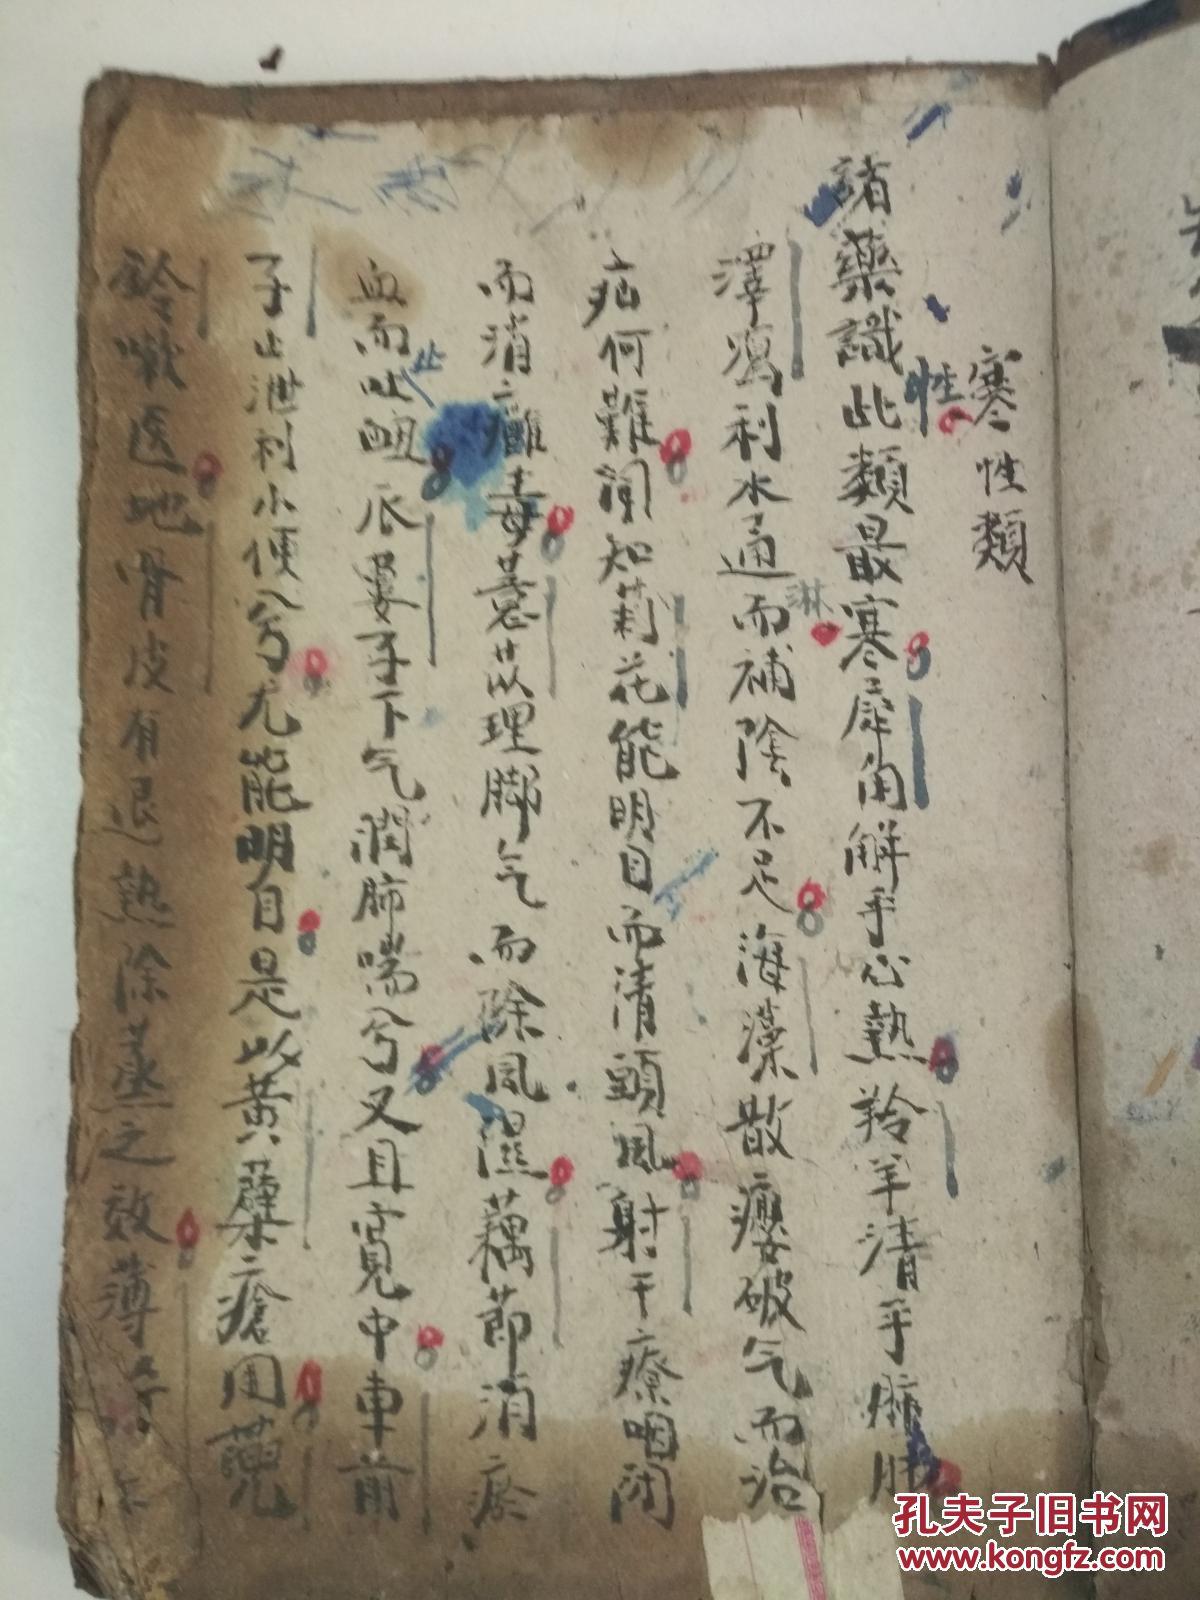 寒性類
諸藥識性此類最寒犀角解乎心熱羚羊清乎肺肝
澤瀉利水通淋而補陰不足海藻散癭破气而治
疝何難聞知菊花能明目而清頭風射干療咽閉
而消癰毒薏苡理脚气而除風濕藕節消瘀
血而止吐衄瓜蔞子下气潤肺喘兮又且寬中車前
子止泄利小便兮尤能明目是以黃蘗瘡用兜
鈴嗽医地骨皮有退熱除蒸之效薄荷
孔夫子旧书网
www.kongfz.com